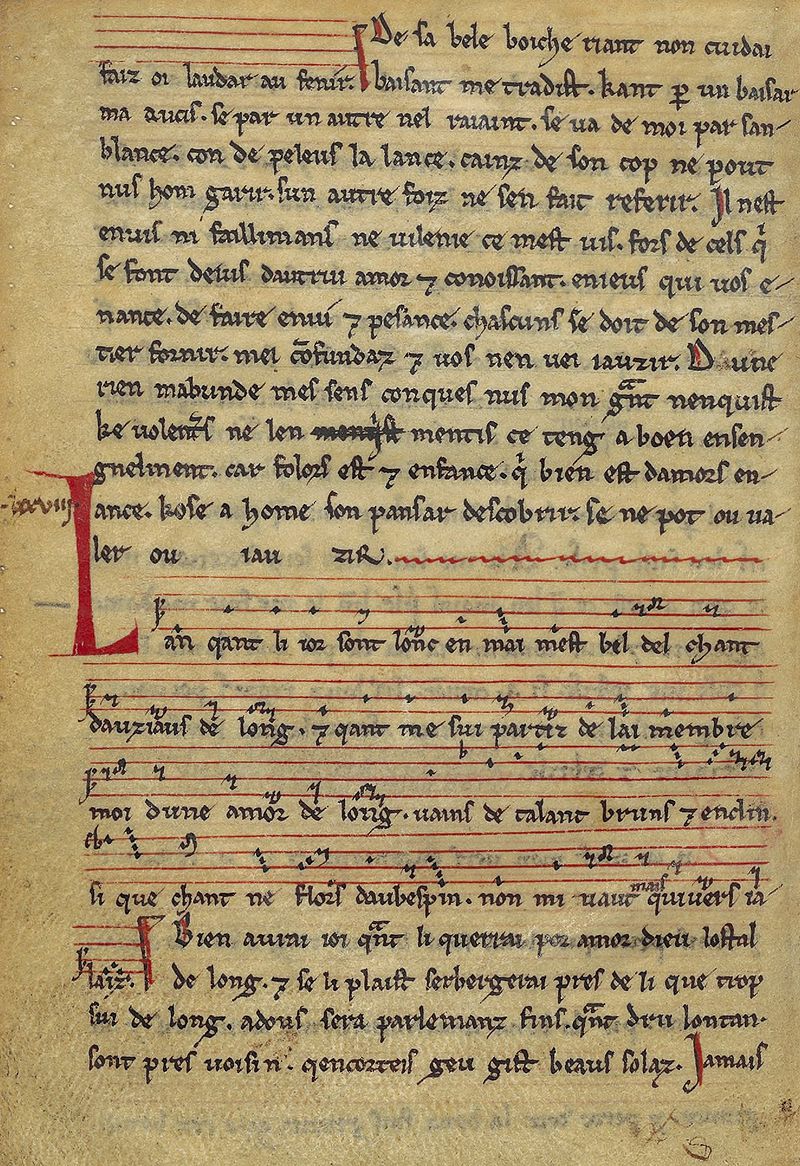 De sa bele boiche riant non cuidai
faiz oi laudar au fenir. baisant me tradist. kant ꝑ un baisar
ma aucis. se par un autre nel raiaint. se va de moi par san-
blance. con de peleus la lance. cainz de son cop ne pout
nus hom garir. sun autre foiz ne sen fait referir. Il nest
envis ni faillimans ne vilenie ce mest vis. fors de cels q̇
se font devis dautrui amor ⁊ conoissant. enieus qui vos e-
nance. de faire envi ⁊ pesance. chascuns se doit de son mes-
tier fornir. mei cōfundaz ⁊ vos nen vei iauzir. D une
rien mabunde mes sens conques nus mon gnt nenquist
ke volents ne len mentis ce teng a boen ensen-
gnelment. car folors est ⁊ enfance. q̇ bien est damors en-
lxxviiij. lance. kose a home son pansar descobrir. se ne pot ou va-
ler ou iau zir.
Lan qant li ior sont lonc en mai mest bel del chant
dauziaus de long. ⁊ qant me sui partiz de lai membre
moi dune amor de long. vains de talant bruns ⁊ enclin.
si que chant ne flors daubespin. non mi vaut mais quivers ia
Bien aurai ioi qnt li querrai por amor dieu lostal
laiz. de long. ⁊ se li plaist serbergerai pres de li que trop
sui de long. adous sera parlemanz fins. qnt dru lontan.
sont pres voisin. qencorteis geu gist beaus solaz. Jamais